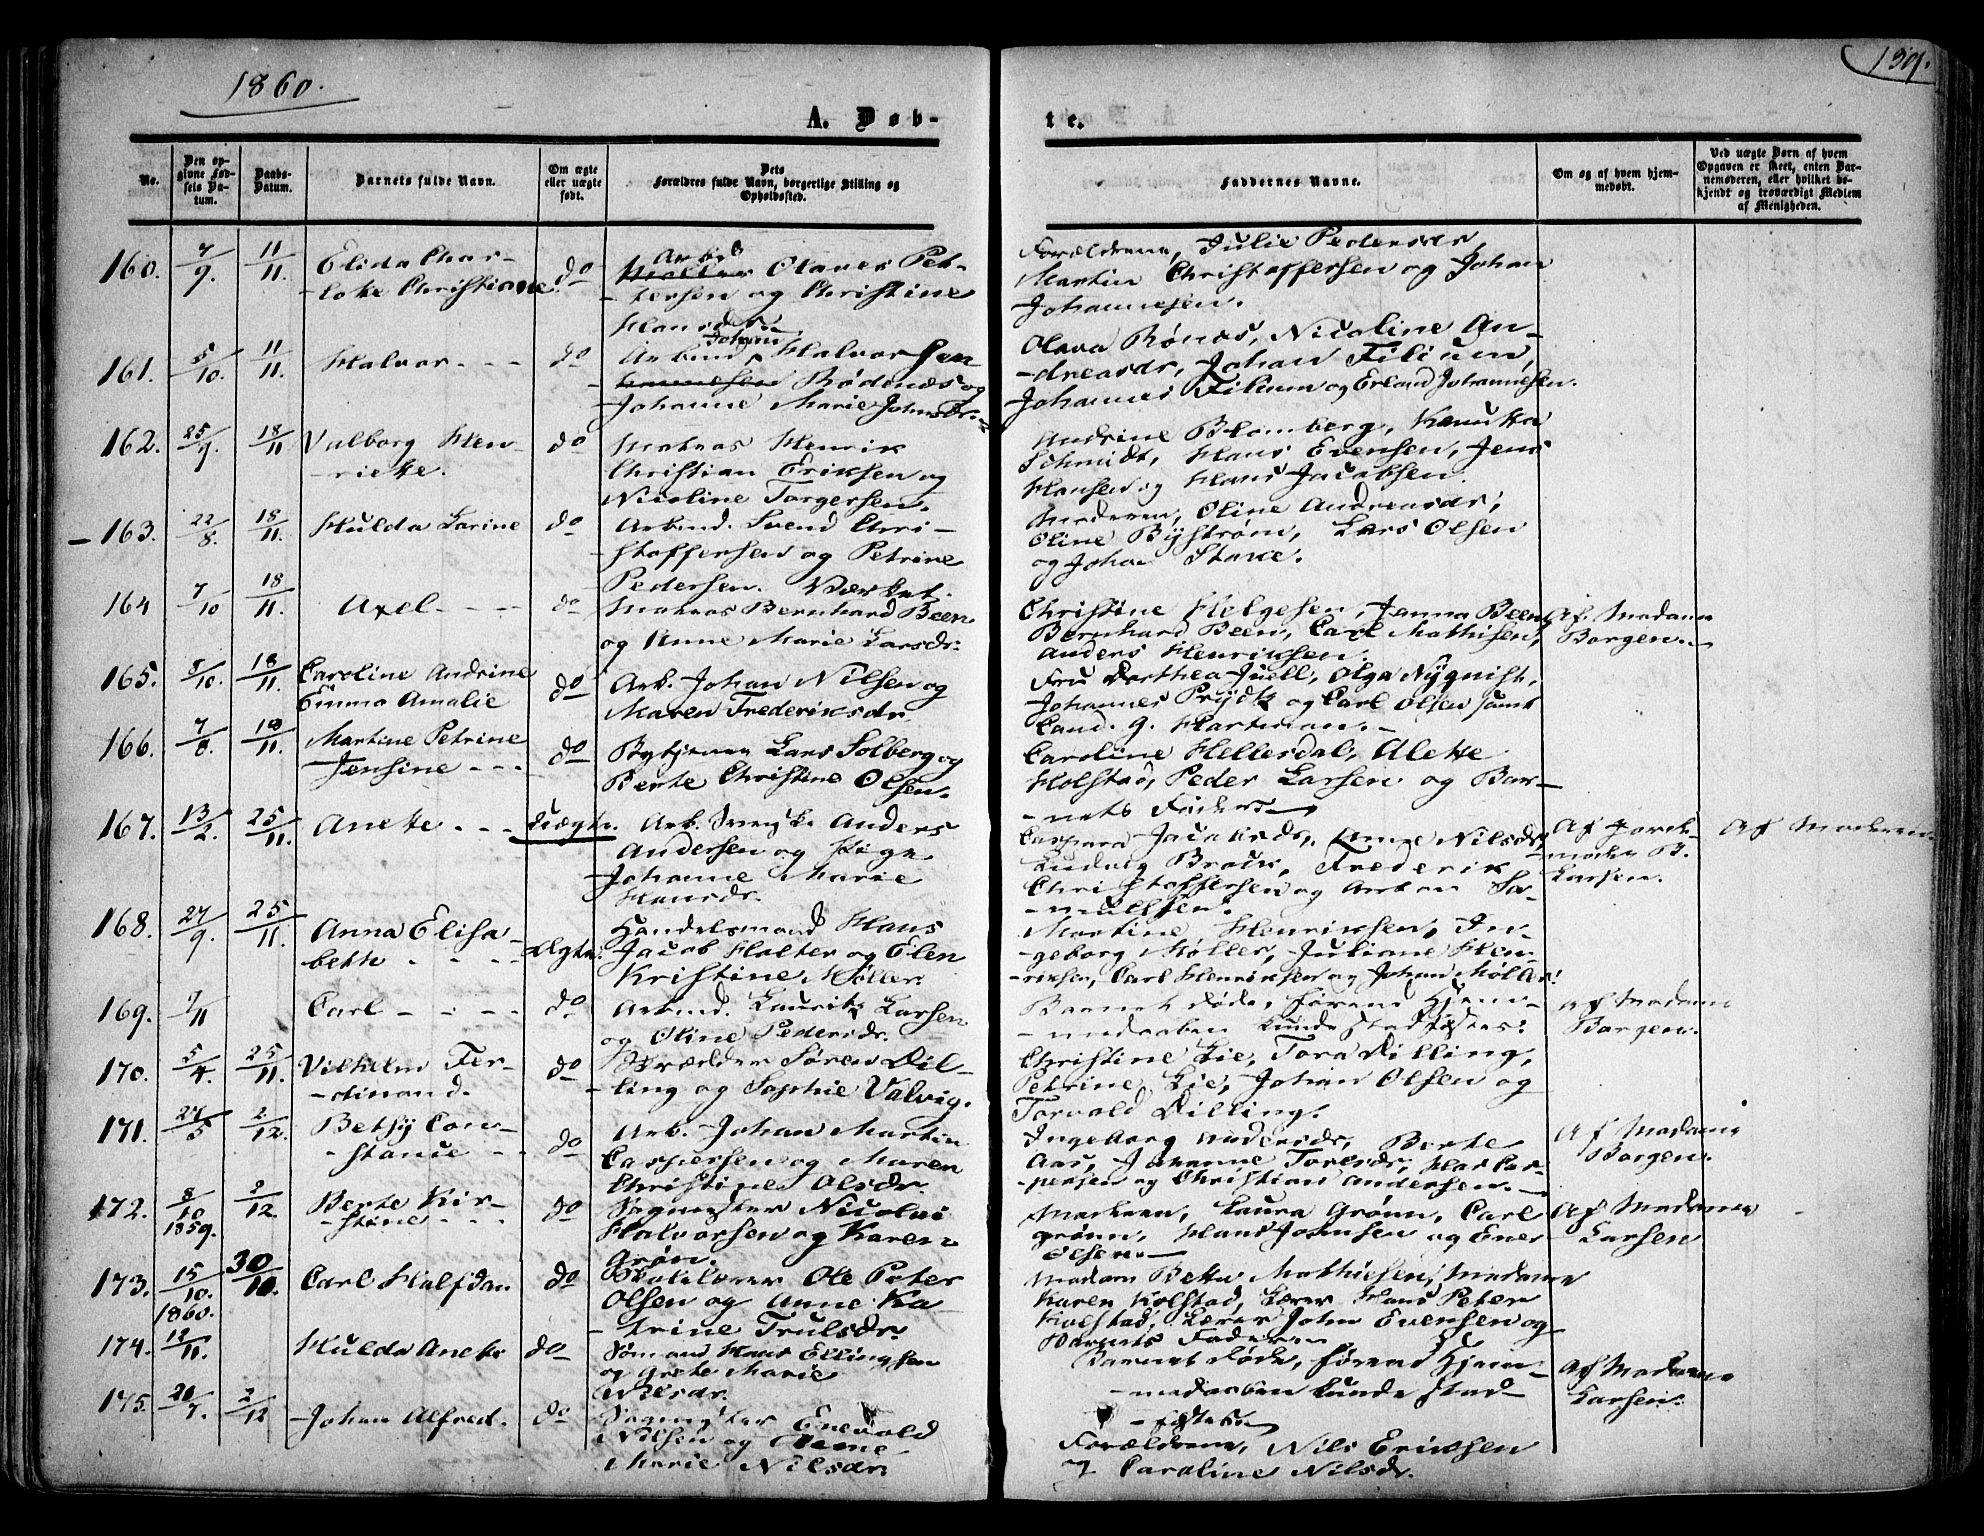 1860.
139.
A. Døb-
te.
No.
Den op-
givne Fød-
sels Da-
tum.
Daabs-
Datum.
Barnets fulde Navn.
Om ægte
eller uægte
født.
Dets
Forældres fulde Navn, borgerlige Stilling og
Opholdssted.
Faddernes Navne.
Om og af hvem hjem-
medøbt.
Ved uægte Børn af hvem
Opgaven er skeet, enten Bar-
nemoderen, eller hvilket be-
kjendt og troværdigt Medlem
af Menigheden.
160.
7/9.
11/11.
Elida Char-
-lotte Christiane
do
Arbd
Olaves Pet-
-tersen og Christine
Hansdr.
Forældrene, Julie Pedersdr,
Martin Christoffersen og Johan
Johannesen.
161.
5/10.
11/11.
Halvor - - -
do
Johan
Arbmd, Halvorsen
Rødenæs og
Johanne Marie Johnsdr.
Olava Rønæs, Nicoline An-
-dreasdr, Johan Filium,
Johannes Filium og Erland Johannesen.
162.
25/9.
18/11
Valborg Hen-
-riette.
do
Matros Henrik
Christian Eriksen og
Nicoline Torgersen.
Andrine Blomberg,
Schmidt, Hans Evensen, Jens
Hansen og Hans Jacobsen.
163.
22/8.
18/11.
Hulda Larine
do
Arbmd. Svend Chri-
stoffersen og Petrine
Pedersen. Værket.
Moderen, Oline Andreasdr,
Oline Byström, Lars Olsen
og Johan
164
7/10
18/11.
Axel - - - -
do
Matros Bernhard Been
og Anne Marie Larsdr.
Christine Helgesen, Janna Been,
Bernhard Been, Carl Mathisen,
Anders Henriksen.
Af Madame
Borgen.
165.
8/10.
18/11.
Caroline Andrine
Emma Amalie
do
Arb. Johan Nilsen og
Maren Frederiksdr.
Fru Dorthea Juell, Olga Nyqvist,
Johannes Prydtz og Carl Olsen samt
Cand. G. Hartman. -
166.
7/8.
18/11.
Martine Petrine
Jensine - - -
do
Bytjener Lars Solberg og
Berte Christine Olsen.
Caroline Hellesdal, Alette
Holstad, Peder Larsen og Bar-
-nets Fader.
167.
13/2.
25/11.
Anette - - -
Uægte.
Arb. Anders
Andersen og Pige
Johanne Marie
Hansdr.
Caspara Jacobsdr, Anne Nilsdr,
Ludvig Frederik
Christoffersen og Anton Sa-
-muelsen.
Af Jord-
moder B.
Larsen.
Af Moderen.
168.
27/9.
25/11.
Anna Elisa-
bette - - -
Ægte.
Handelsmand Hans
Jacob Holter og Elen
Kristine Møller.
Martine Henriksen, In-
-geborg Møller, Juliane Hen-
-riksen, Carl Henriksen og Johan Møller.
169.
/11
Carl - - - -
do
Arbmd. Lauritz Larsen
og Oline Pedersdr.
Barnet døde, førend Hjem-
-medaaben kunde stadfæstes.
Af Madame
Borgen.
170.
5/4.
25/11.
Vilhelm Fer-
-dinand.
do
Søren Dil-
-ling og Sophie Valvig.
Christine Lie, Tora Dilling,
Petrine Lie, Johan Olsen og
Torvald Dilling.
171.
27/5
2/12.
Betsy Con-
-stance - -
do
Arb. Johan Martin
Caspersen og Maren
Christine Olsdr.
Ingeborg Andersdr, Berte
Aas, Johanne Torisdr, Hans Cas-
-persen og Christian Andersen.
Af Madame
Borgen.
172.
8/10
1859.
2/12.
Berte Kir-
-stine - - -
do
Sagmester Nicolai
Halvorsen og Karen
Grøn.
Moderen, Laura Grønn, Carl
Grønn, Hans Johnsen og Ener
Olsen.
Af Madame
Larsen
173.
15/10.
1860.
30/10.
Carl Halfdan
do
Skolelærer Ole Peter
Olsen og Anne Ka
-trine Trulsdr.
Madam Betta Mathiesen, Madame
Karen Kolstad, Lærer Hans Peter
Kolstad, Lærer John Evensen og
Barnets Fader.
174.
12/11.
Hulda Anette
do
Sømand Hans Ellingsen
og Grete Marie
Nilsdr.
Barnet døde, førend Hjem-
-medaaben kunde stad-
-fæstes.
Af Madame
Larsen.
175.
20/7.
2/12
Johan Alfred.
do
Sagmester Enevold
Nilsen og Anne
Marie Nilsdr.
Forældrene, Nils Eriksen
og Caroline Nilsdr.